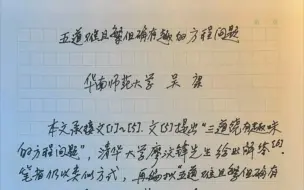 五道难且繁但确有趣的方程问题
华南师范大学 吴
本文承接文[1]~[5]. 文[5]提出“三道繞有趣味
的方程问题”, 清华大学 先生给出解答的.
笔者仍以类似方式, 再编拟五道难且繁但确有